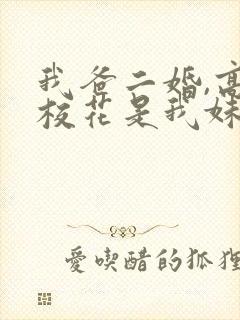 我爸二婚,高
校花是我妹
愛喫醋的狐狸